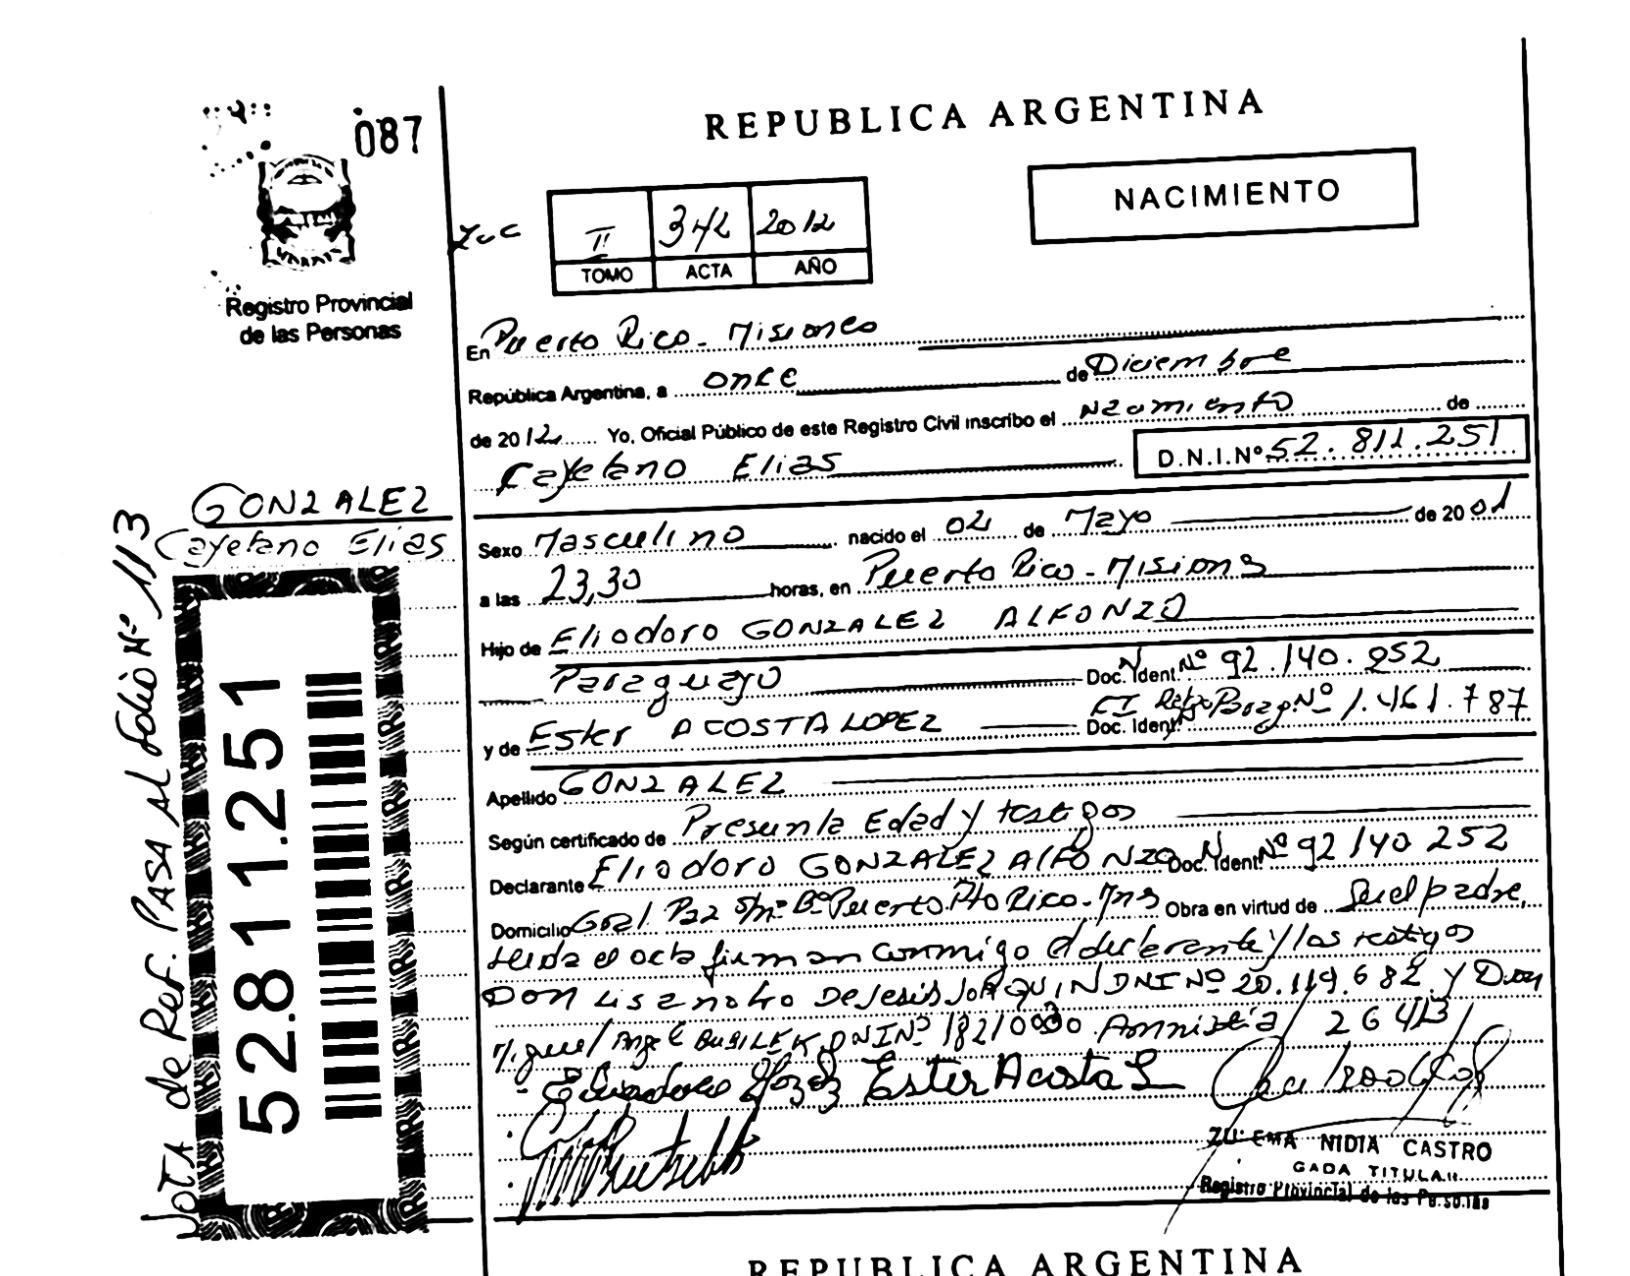 087
REPUBLICA ARGENTINA
NACIMIENTO
II 342 2012
TOMO ACTA AÑO
Registro Provincial
de las Personas
En Puerto Rico - Misiones
República Argentina, a once de Diciembre
de 2012 Yo, Oficial Público de este Registro Civil inscribo el Nacimiento de
Cayetano Elias D.N.I.Nº 52.811.251
GONZALEZ
Cayetano Elias
Sexo Masculino nacido el 02 de Mayo de 2001
a las 23,30 horas, en Puerto Rico - Misiones
Hijo de Eliodoro GONZALEZ ALFONZO
Paraguayo Doc. Ident. Nº 92.140.252
y de Ester ACOSTA LOPEZ Doc. Ident. CI Nº 1.461.787
Apellido GONZALEZ
Según certificado de Presunta Edad y testigos
Declarante Eliodoro GONZALEZ ALFONZO Doc. Ident. Nº 92 140 252
Domicilio Gral. Paz s/nº Bº Puerto Pto Rico - Mns Obra en virtud de Ser el padre,
Leida el acta firman conmigo el declarante y los testigos
DON Lisandro De Jesús JOAQUIN DNI Nº 20.119.682 y Don
Miguel Angel DNI Nº 18210030 Amnistia 26413
Ester Acosta L
NOTA de Ref. PASA AL Folio Nº 113
52.811.251
NIDIA CASTRO
TITULAR
Registro Provincial de las Personas
REPUBLICA ARGENTINA